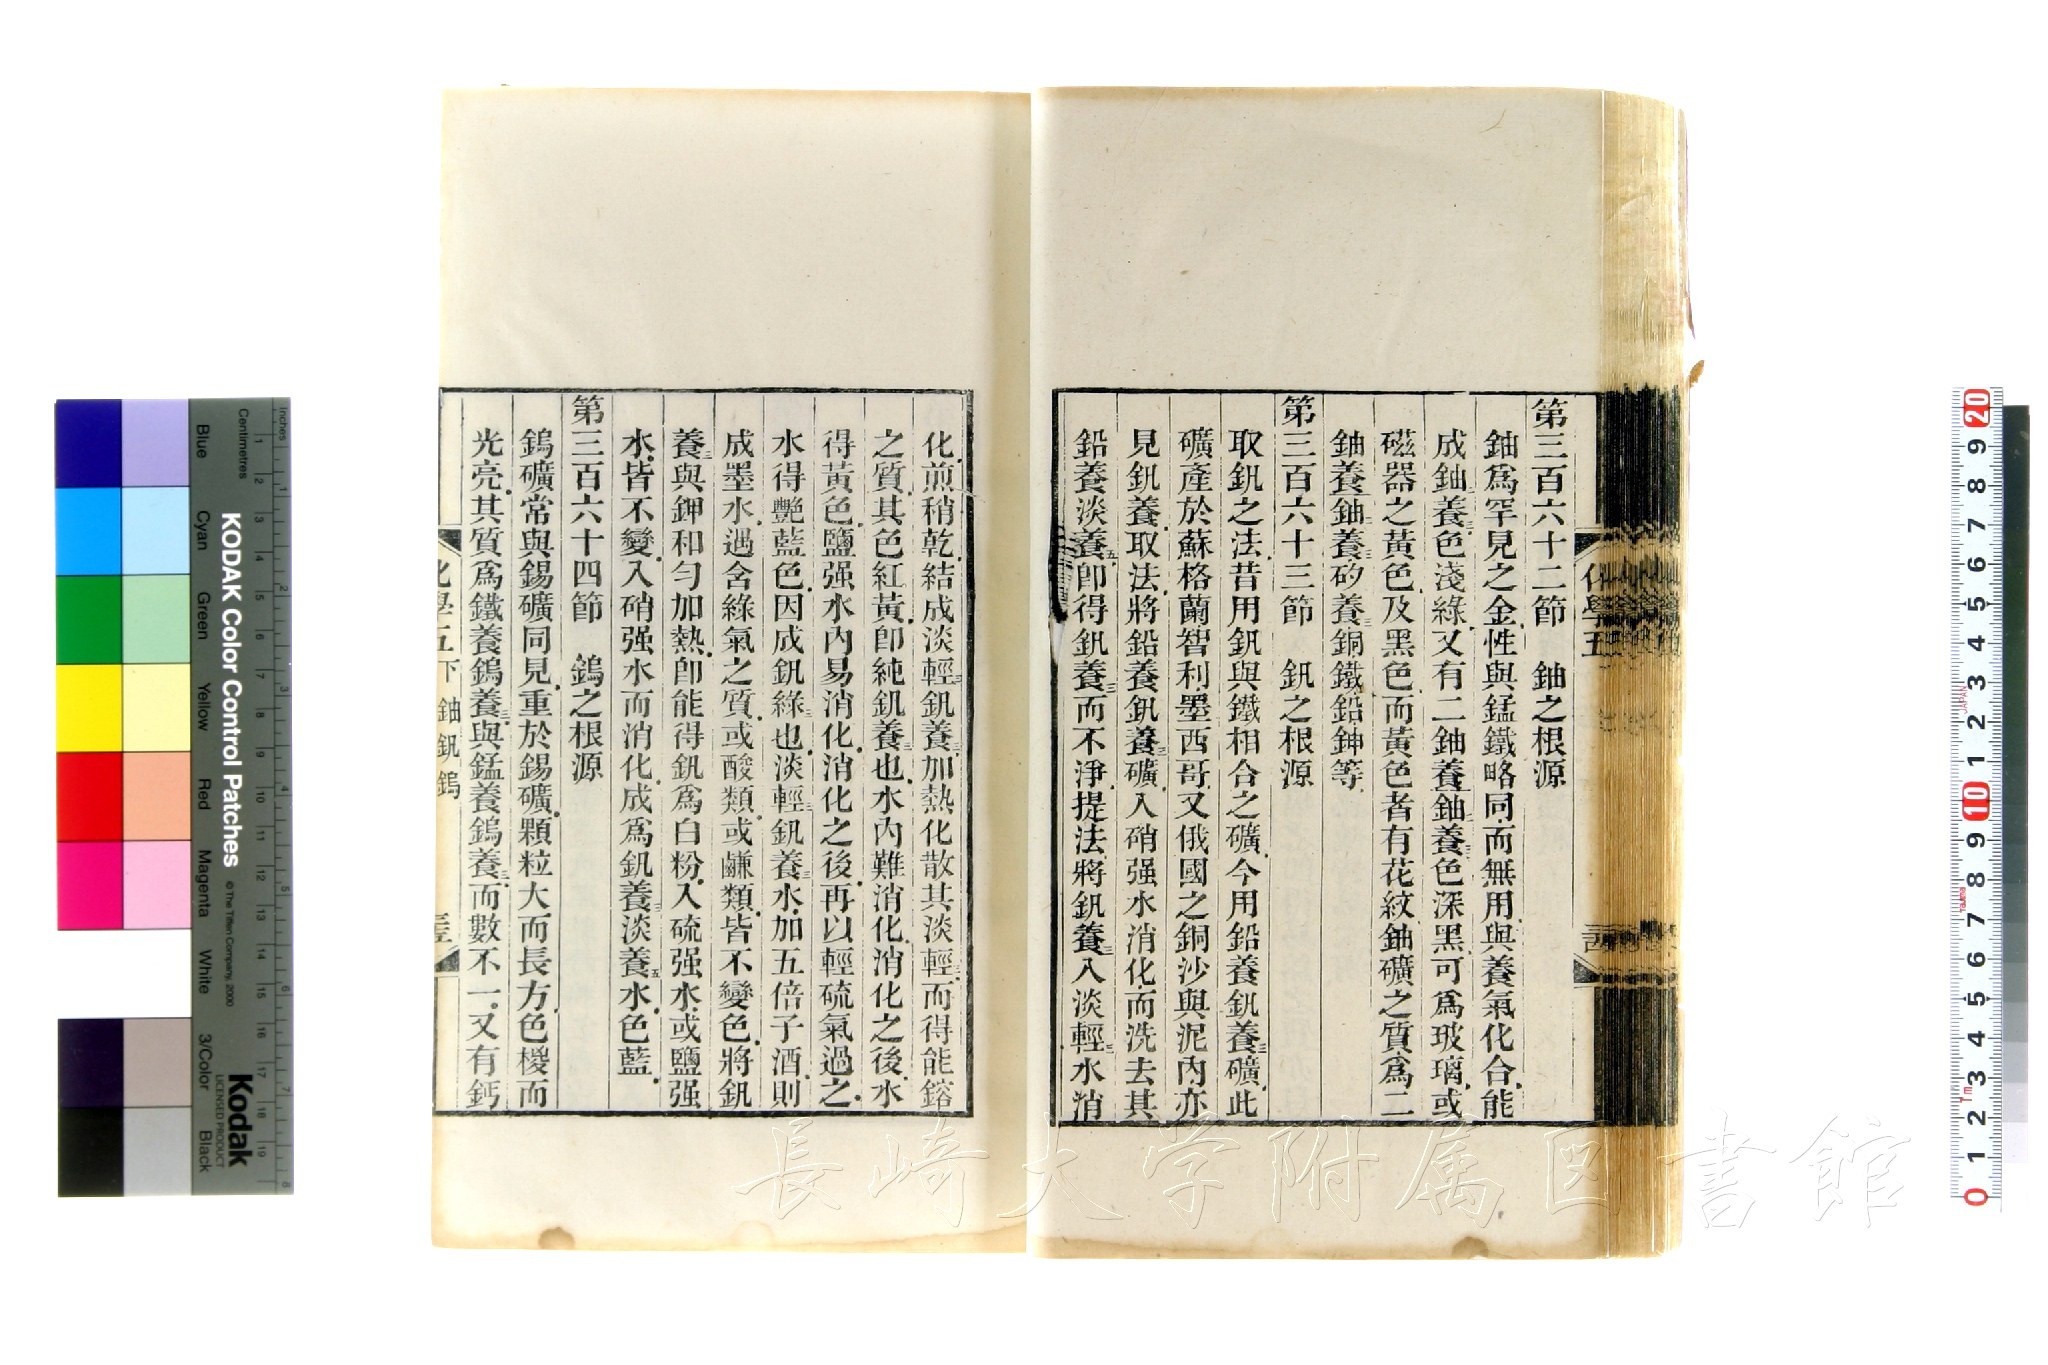 第三百六十二節 鈾之根源
鈾爲罕見之金性與錳鐵略同而無用與養氣化合能
成鈾養色淺綠又有二鈾養鈾養色深黑可爲玻璃或
磁器之黃色及黑色而黃色者有花紋鈾礦之質爲二
鈾養鈾養矽養銅鐵鉛鉮等
第三百六十三節 釩之根源
取釩之法昔用釩與鐵相合之礦今用鉛養釩養三礦此
礦產於蘇格蘭智利墨西哥又俄國之銅沙與泥內亦
見釩養取法將鉛養釩養三礦入硝强水消化而洗去其
鉛養淡養五卽得釩養三而不淨提法將釩養三入淡輕三水消
化煎稍乾結成淡輕三釩養三加熱化散其淡輕三而得能鎔
之質其色紅黃卽純釩養三也水內難消化消化之後水
得黃色鹽强水內易消化消化之後再以輕硫氣過之
水得艷藍色因成釩綠三也淡輕三釩養三水加五倍子酒則
成墨水遇含綠氣之質或酸類或鹻類皆不變色將釩
養三與鉀和勻加熱卽能得釩爲白粉入硫强水或鹽强
水皆不變入硝强水而消化成爲釩養三淡養五水色藍
第三百六十四節 鎢之根源
鎢礦常與錫礦同見重於錫礦顆粒大而長方色椶而
光亮其質爲鐵養鎢養三與錳養鎢養三而數不一又有鈣
化學五
化學五下 鈾釩鎢
KODAK Color Control Patches
© The Tiffen Company, 2000
Kodak
LICENSED PRODUCT
Inches
Centimetres
Blue
Cyan
Green
Yellow
Red
Magenta
White
3/Color
Black
1 2 3 4 5 6 7 8
1 2 3 4 5 6 7 8 9 10 11 12 13 14 15 16 17 18 19
20 9 8 7 6 5 4 3 2 1 10 9 8 7 6 5 4 3 2 1 0
JAPAN
Tajima
長崎大学附属図書館